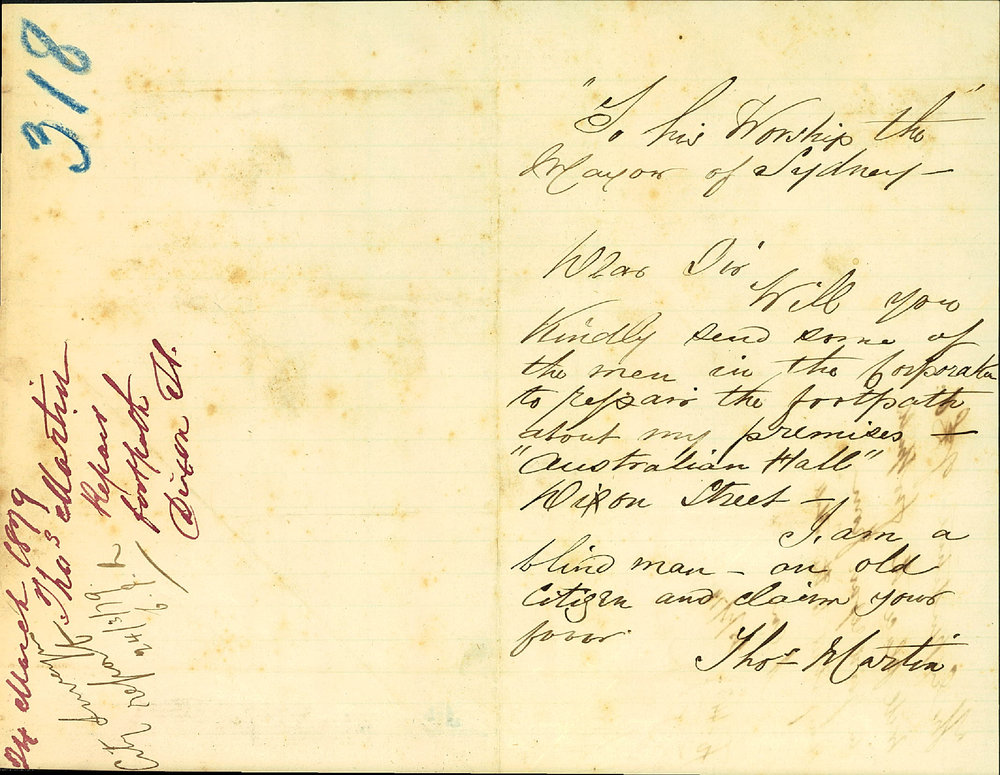 318
24 March 1879
Thos Martin
Repair
footpath
Dixon St.
City
report
24/3/79
"To his Worship the"
Mayor of Sydney —
Dear Sir
Will you
Kindly send some of
the men in the Corporation
to repair the footpath
about my premises —
"Australian Hall"
Dixon Street —
I am a
blind man – an old
Citizen and claim your
favor.
Thos Martin